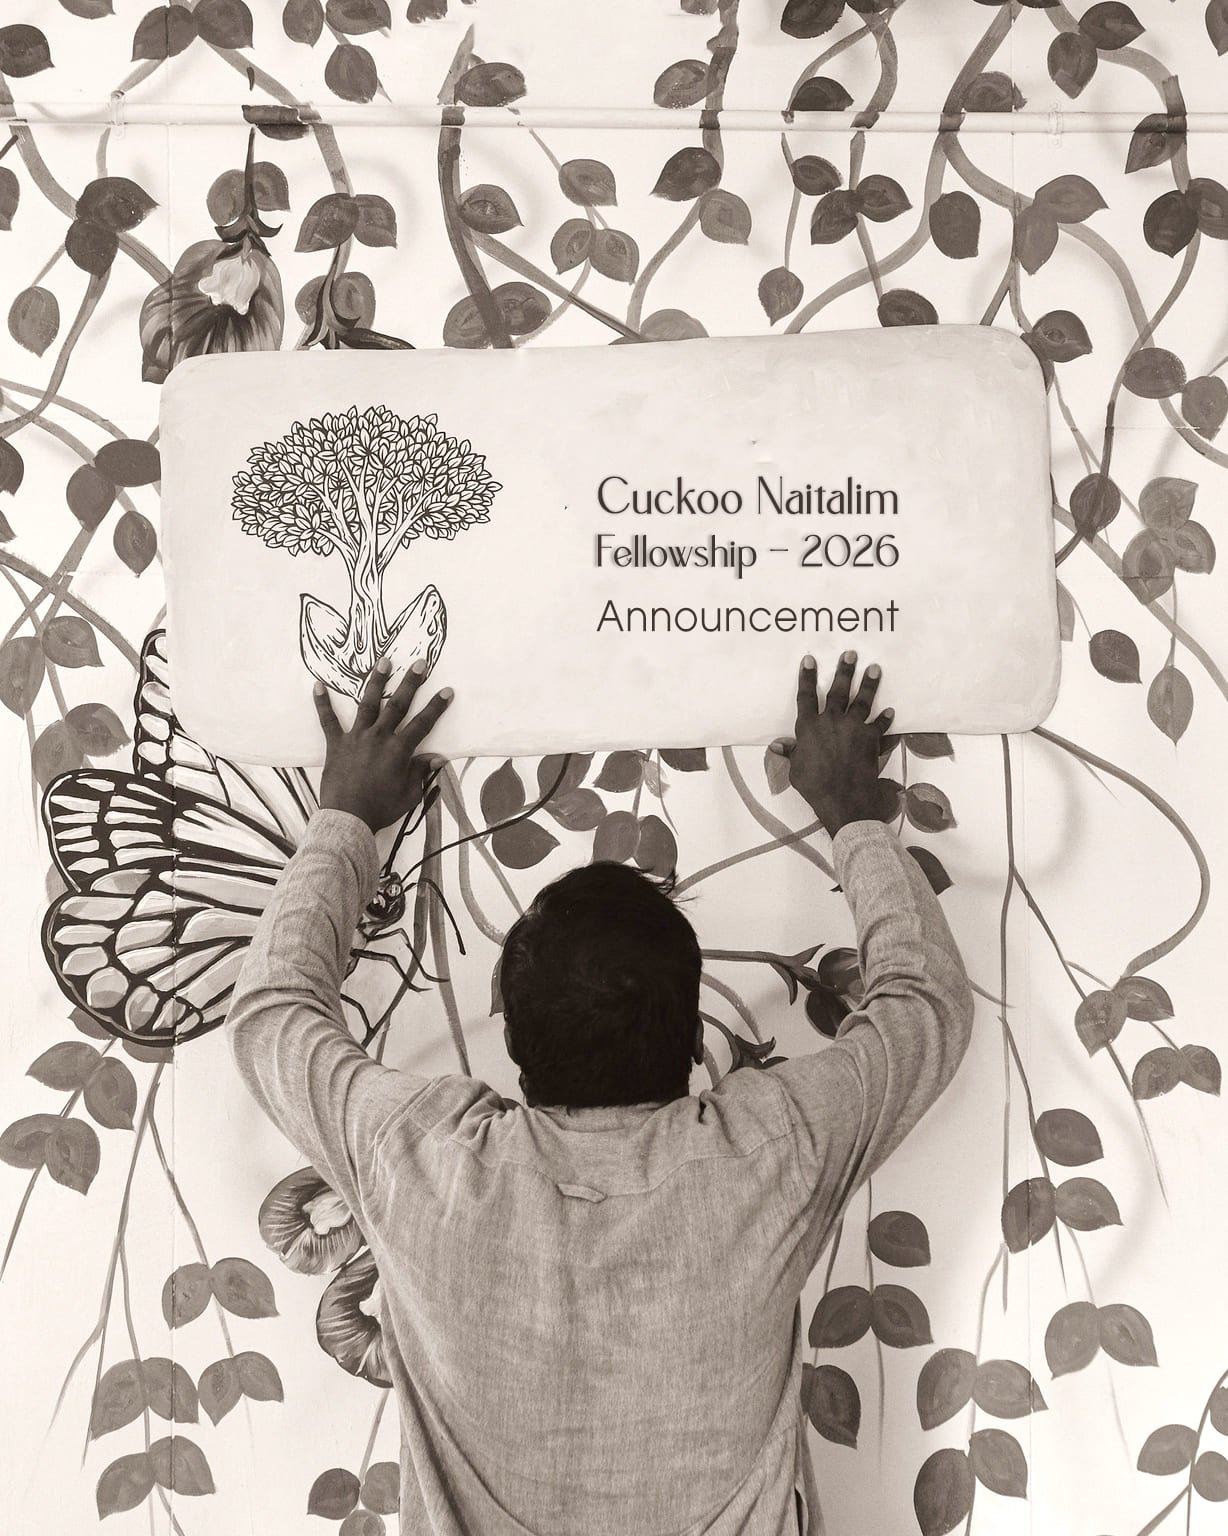 Cuckoo Naitalim
Fellowship – 2026
Announcement